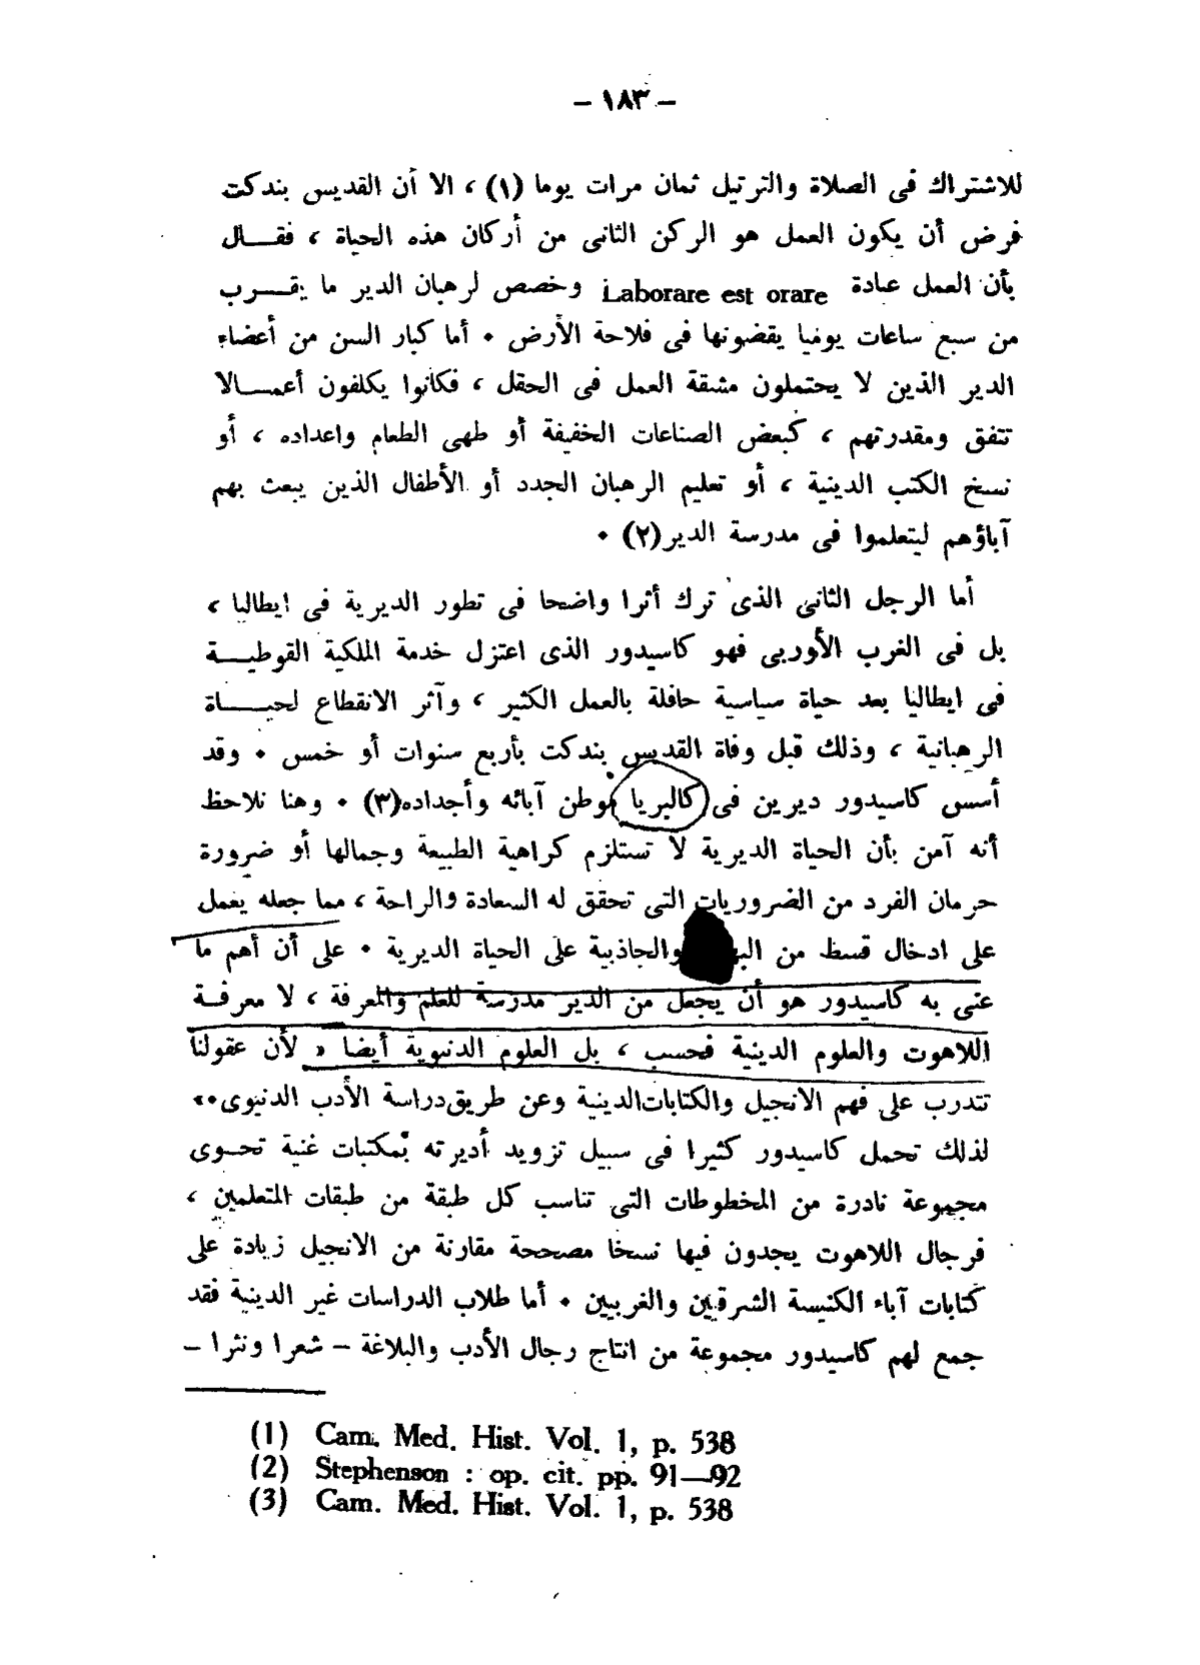 - ١٨٣ -
للاشتراك فى الصلاة والترتيل ثمان مرات يوما (١) ، الا أن القديس بندكت
فرض أن يكون العمل هو الركن الثانى من أركان هذه الحياة ، فقـــال
بأن العمل عبادة Laborare est orare وخصص لرهبان الدير ما يقـــرب
من سبع ساعات يوميا يقضونها فى فلاحة الأرض · أما كبار السن من أعضاء
الدير الذين لا يحتملون مشقة العمل فى الحقل ، فكانوا يكلفون أعمـــالا
تتفق ومقدرتهم ، كبعض الصناعات الخفيفة أو طهى الطعام واعداده ، أو
نسخ الكتب الدينية ، أو تعليم الرهبان الجدد أو الأطفال الذين يبعث بهم
آباؤهم ليتعلموا فى مدرسة الدير(٢) ·
أما الرجل الثانى الذى ترك أثرا واضحا فى تطور الديرية فى ايطاليا ،
بل فى الغرب الأوربى فهو كاسيدور الذى اعتزل خدمة الملكية القوطيـــة
فى ايطاليا بعد حياة سياسية حافلة بالعمل الكثير ، وآثر الانقطاع لحيـــاة
الرهبانية ، وذلك قبل وفاة القديس بندكت بأربع سنوات أو خمس · وقد
أسس كاسيدور ديرين فى كالبريا موطن آبائه وأجداده(٣) · وهنا نلاحظ
أنه آمن بأن الحياة الديرية لا تستلزم كراهية الطبيعة وجمالها أو ضرورة
حرمان الفرد من الضروريات التى تحقق له السعادة والراحة ، مما جعله يعمل
على ادخال قسط من والجاذبية على الحياة الديرية · على أن أهم ما
عنى به كاسيدور هو أن يجعل من الدير مدرسة للعلم والمعرفة ، لا معرفـة
اللاهوت والعلوم الدينية فحسب ، بل العلوم الدنيوية أيضا « لأن عقولنا
تتدرب على فهم الانجيل والكتابات الدينية وعن طريق دراسة الأدب الدنيوى··»
لذلك تحمل كاسيدور كثيرا فى سبيل تزويد أديرته بمكتبات غنية تحـوى
مجموعة نادرة من المخطوطات التى تناسب كل طبقة من طبقات المتعلمين ،
فرجال اللاهوت يجدون فيها نسخا مصححة مقارنة من الانجيل زيادة على
كتابات آباء الكنيسة الشرقيين والغربيين · أما طلاب الدراسات غير الدينية فقد
جمع لهم كاسيدور مجموعة من انتاج رجال الأدب والبلاغة - شعرا ونثرا -
(1) Cam. Med. Hist. Vol. 1, p. 538
(2) Stephenson : op. cit. pp. 91—92
(3) Cam. Med. Hist. Vol. 1, p. 538